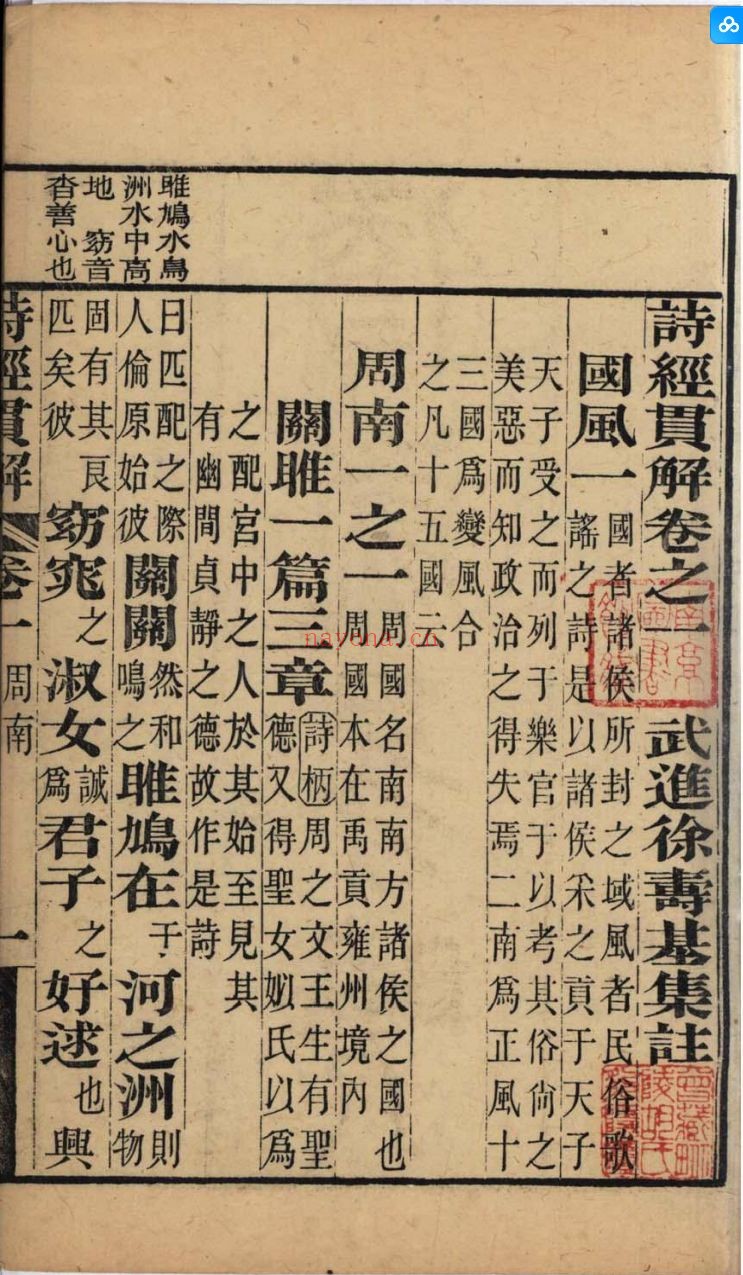 詩經貫解卷之一　武進徐壽基集註
國風一 國者諸侯所封之域風者民俗歌
謠之詩是以諸侯采之貢于天子
天子受之而列于樂官于以考其俗尙之
美惡而知政治之得失焉二南爲正風十
三國爲變風合
之凡十五國云
周南一之一 周國名南南方諸侯之國也
周國本在禹貢雍州境內
關雎一篇三章 詩柄 周之文王生有聖
德又得聖女姒氏以爲
之配宮中之人於其始至見其
有幽閒貞靜之德故作是詩
曰匹配之際
人倫原始彼 關關 然和
鳴之 雎鳩在 于 河之洲 則
物
固有其良
匹矣彼 窈窕 之 淑女 誠
爲 君子 之 好逑 也興
雎鳩水鳥
洲水中高
地　窈音
杳善心也
詩經貫解 卷一 周南 一